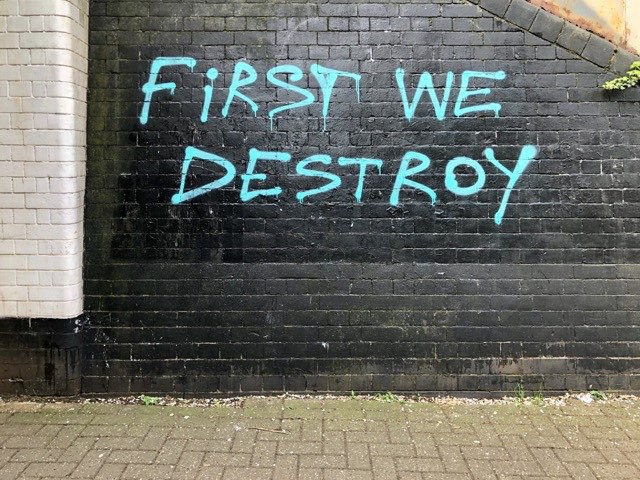 FiRST WE
DESTROY